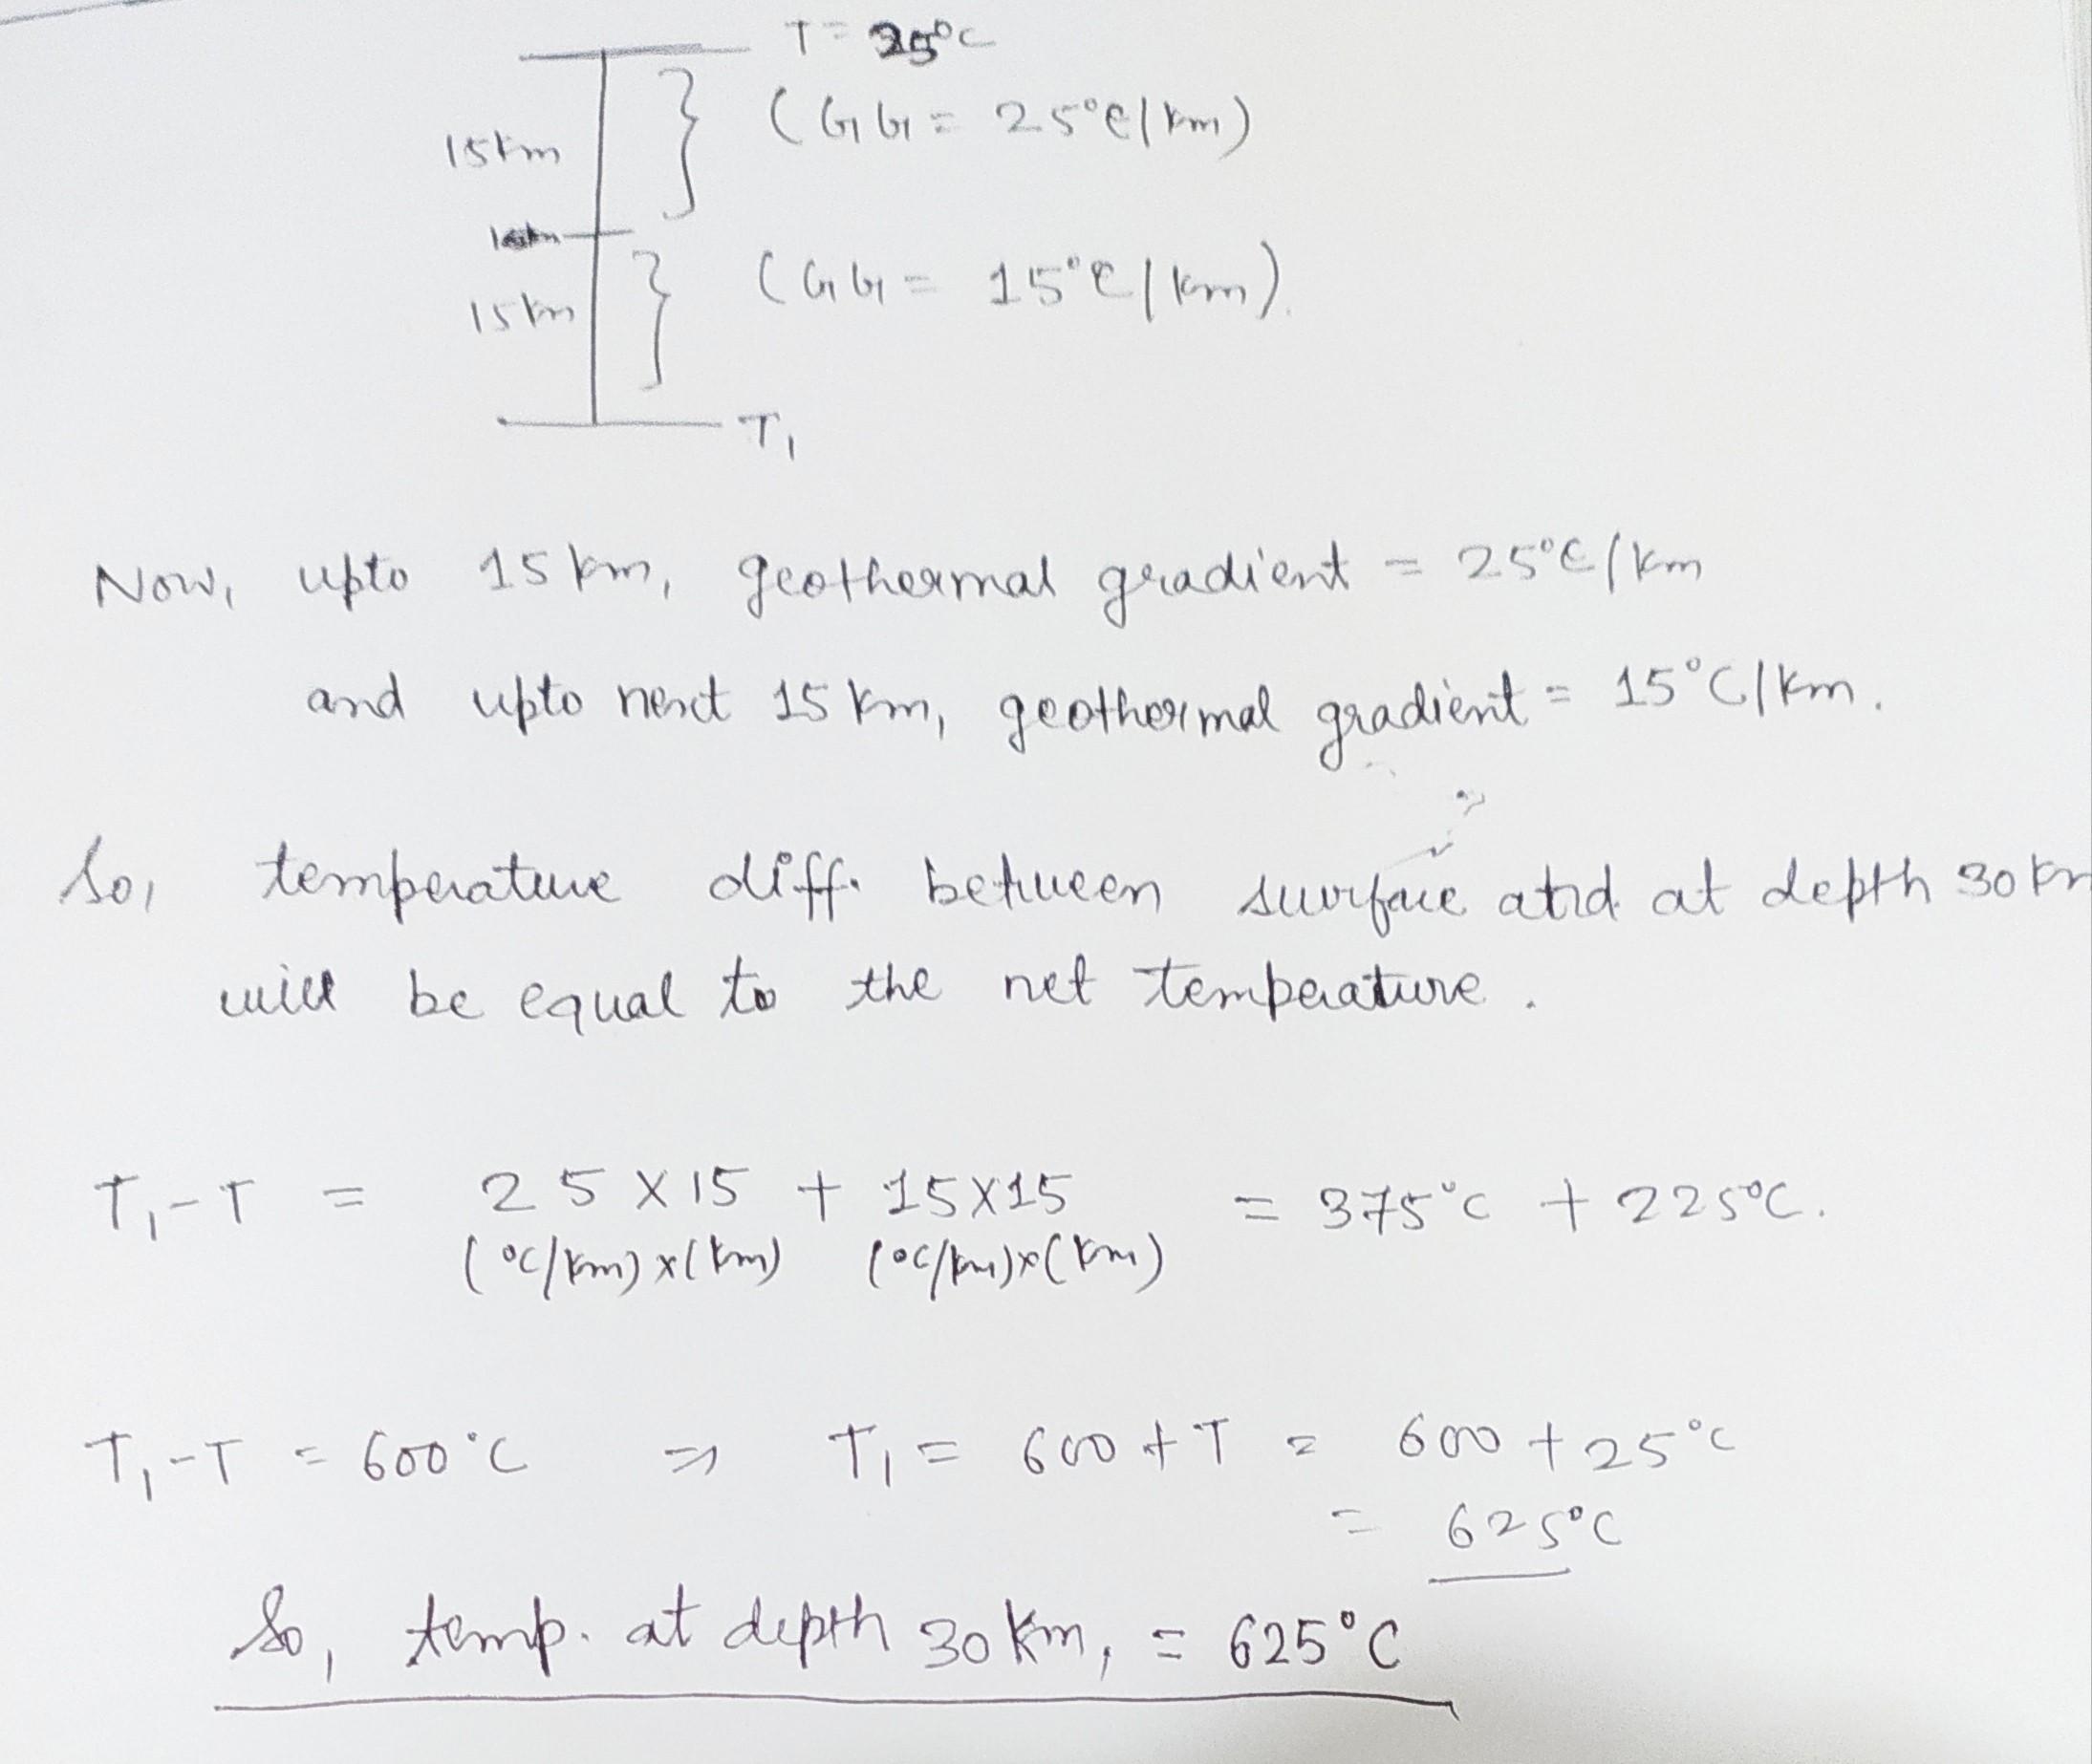 T = 25°C
15km
(GG = 25°C/km)
15km
(GG = 15°C/km).
T₁
Now, upto 15 km, geothermal gradient = 25°C/km
and upto next 15 km, geothermal gradient = 15°C/km.
So, temperature diff. between surface and at depth 30 km
will be equal to the net temperature.
T₁-T = 25 X 15 + 15X15 = 375°C + 225°C.
(°C/km) x (km) (°C/km)x(km)
T₁-T = 600°C ⇒ T₁ = 600 + T = 600 + 25°C
= 625°C
So, temp. at depth 30 km, = 625°C